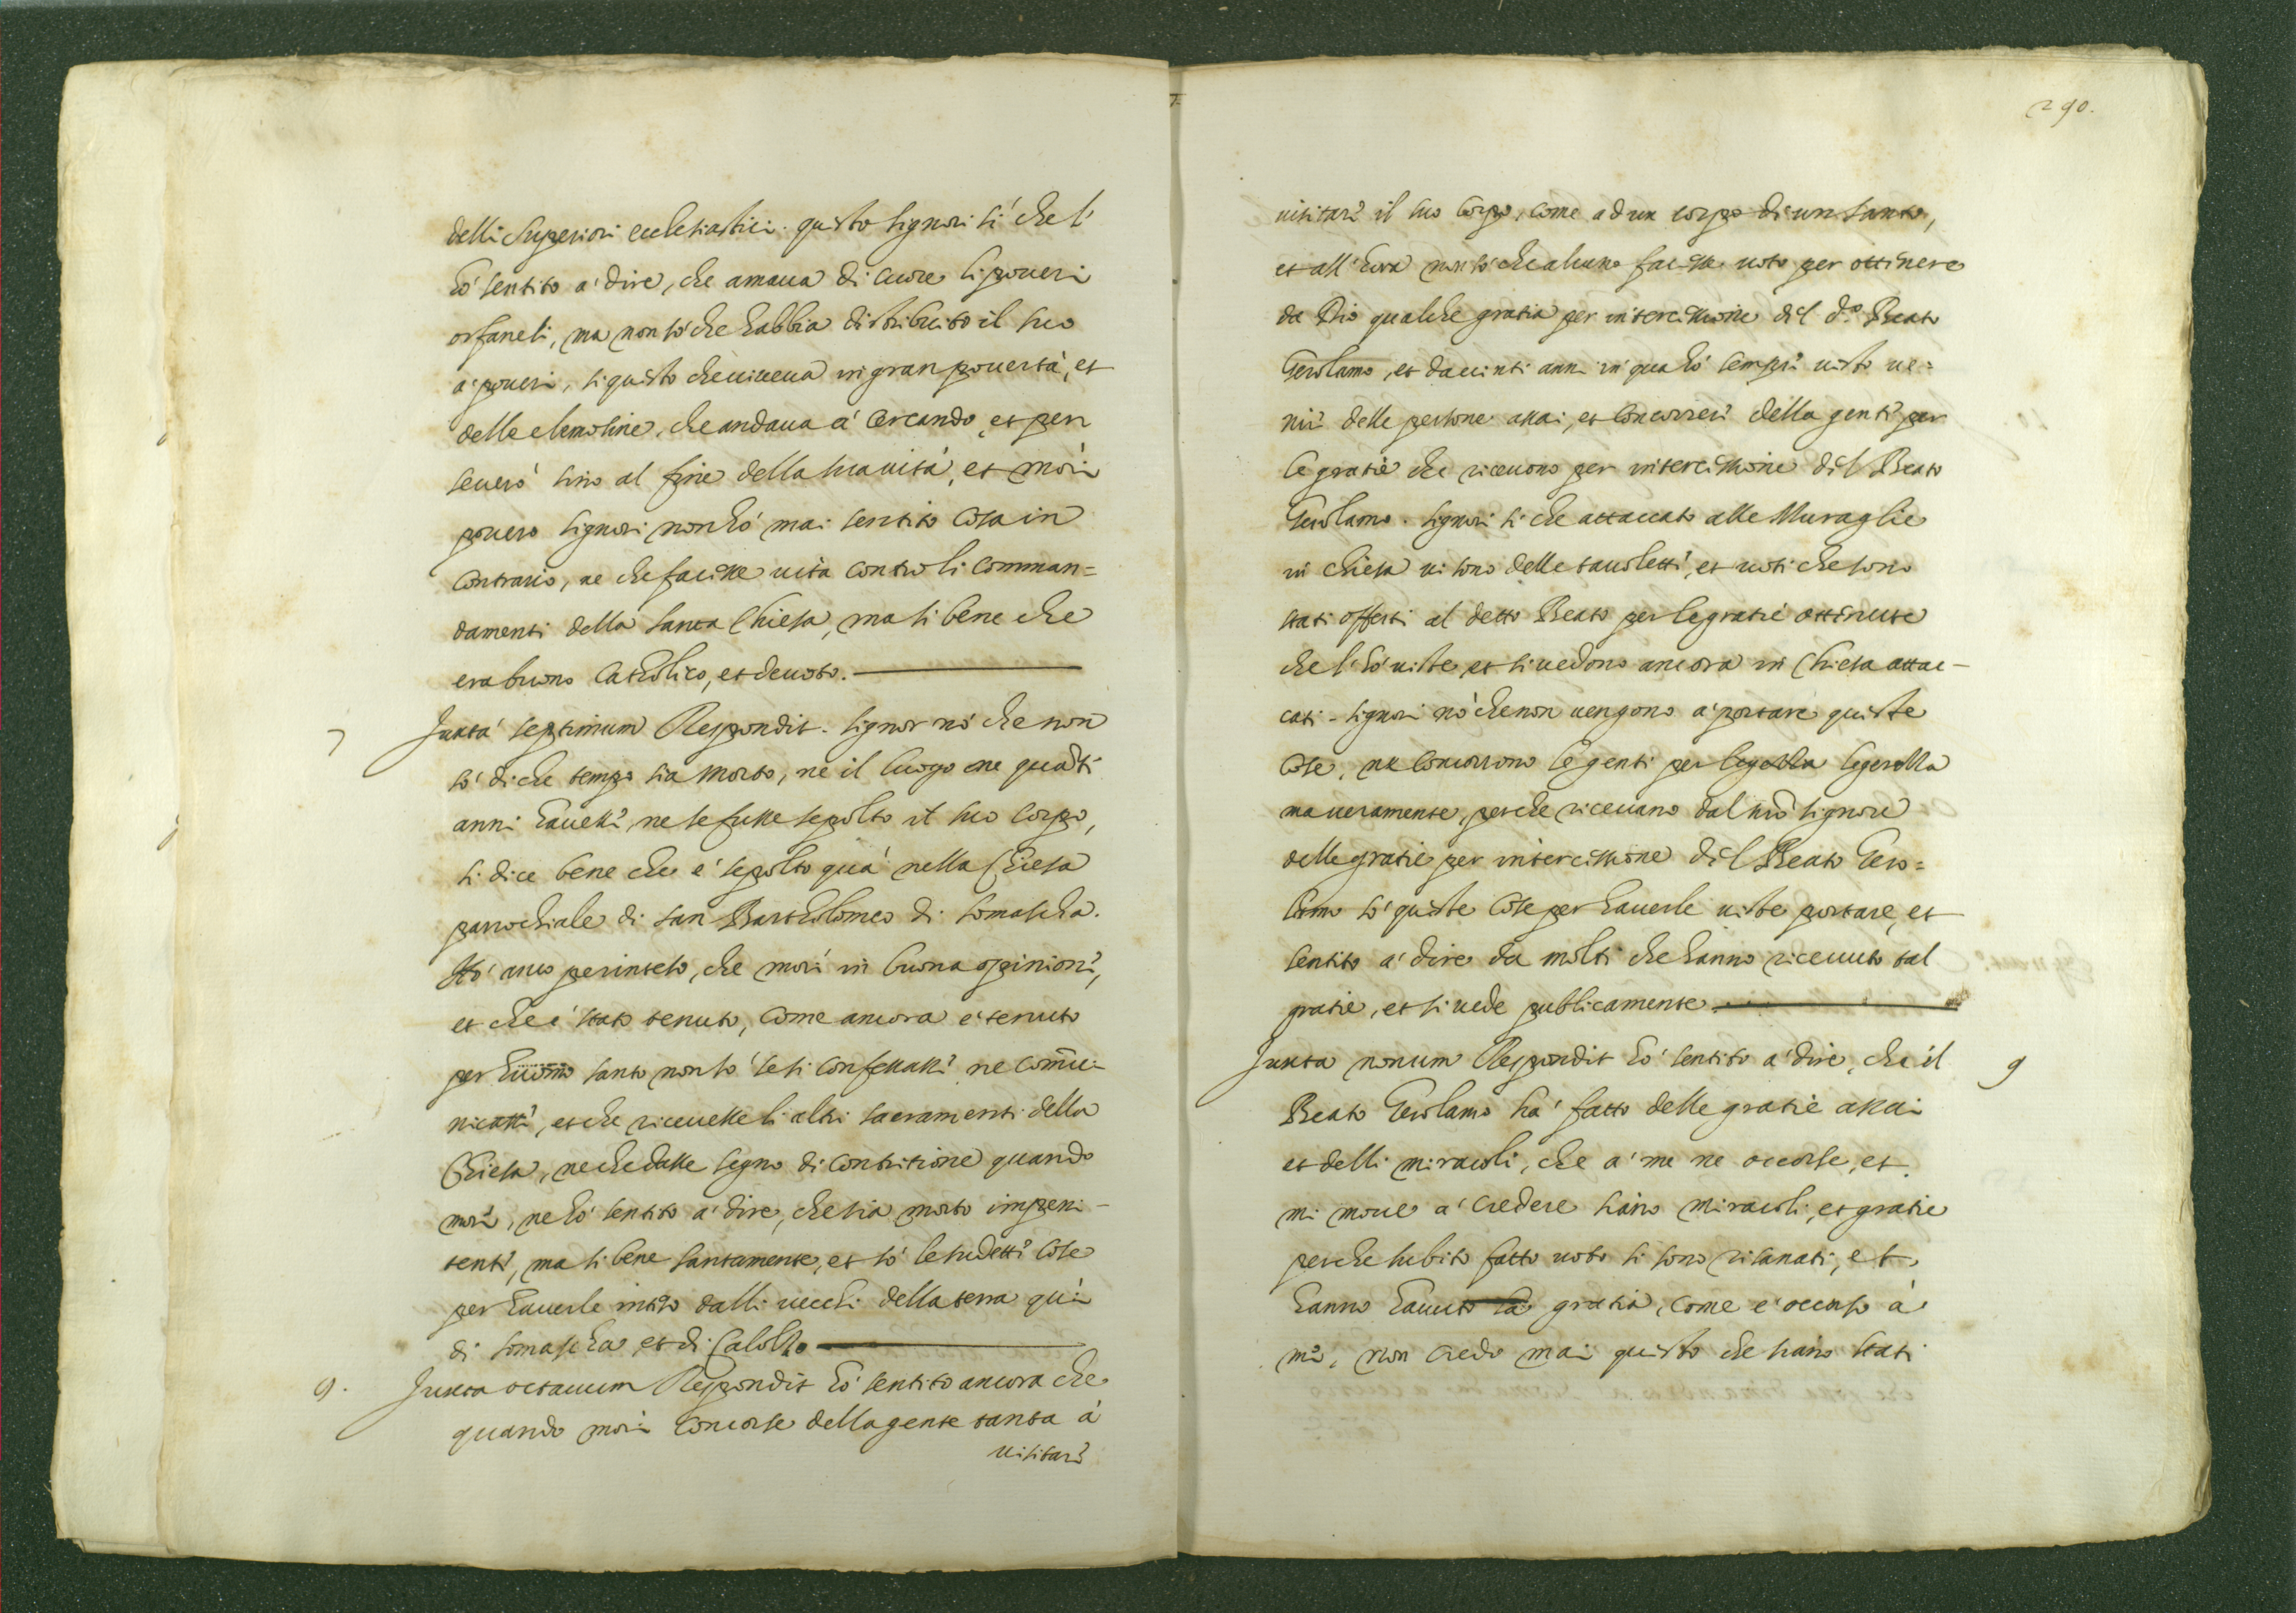 delli Superiori ecclesiastici. questo signori si che l'
hò sentito a' dire, che amaua di cuore li poueri
orfaneli, ma non sò che habbia distribuito il suo
a' poueri, si questo che uiueua in gran pouertà, et
delle elemosine, che andaua à cercando, et per
seuerò sino al fine della sua uita, et morì
pouero signori non hò mai sentito cosa in
contrario, ne che facesse uita contro li comman=
damenti della santa Chiesa, ma si bene che
era buono Catholico, et deuoto.
7 Juxta septimum Respondit. signor nò che non
sò di che tempo sia morto, nè il luogo ne quanti
anni hauesse, ne se fusse sepolto il suo corpo,
si dice bene che è sepolto quà nella Chiesa
parochiale di san Bartholomeo di Somascha.
Hò anco per inteso, che morì in buona opinione,
et che è stato tenuto, come ancora è tenuto
per huomo santo non sò se si confessasse ne comu-
nicasse, et che riceuesse li altri sacramenti della
Chiesa, ne che dasse segno di contritione quando
morì, ne hò sentito a' dire, che sia morto impeni-
tente, ma si bene santamente, et sò le sudette cose
per hauerle inteso dalli uecchi della terra quì
di Somascha et di Calolzo
9. Juxta octauum Respondit hò sentito ancora che
quando morì concorse della gente tanta à
uisitare
290.
uisitare il suo corpo, come ad un corpo di un santo,
et all'hora non sò che alcuno facesse uoto per ottinere
da Dio qualche gratia per intercissione dil d.º Beato
Gerolamo, et da uinti anni in qua hò sempre uisto ue=
nire delle persone assai, et concorrere della gente per
le gratie che riceuono per intercissione dil Beato
Gerolamo. signori si che attaccato alle Muraglie
in chiesa ui sono delle tauolette, et uoti che sono
stati offerti al detto Beato per le gratie ottinute
che l'hò uiste, et si uedono ancora in Chiesa attac-
cati - signori nò che non uengono a' portare queste
cose, ne concorrono le genti per legerella
ma ueramente, perche riceuano dal nrō signore
delle gratie per intercissione dil Beato Gero=
lamo sò queste cose per hauerle uiste portare, et
sentito a' dire da molti che hanno riceuuto tal
gratie, et si uede publicamente
Juxta nonum Respondit hò sentito a' dire, che il 9
Beato Gerolamo hà fatto delle gratie assai
et delli miracoli, che a' me ne occorse, et
mi moue a' credere siano miracoli, et gratie
perche subito fatto uoto si sono risanati, et
hanno hauuto la gratia, come è occorso à
me, non credo mai questo che siano stati